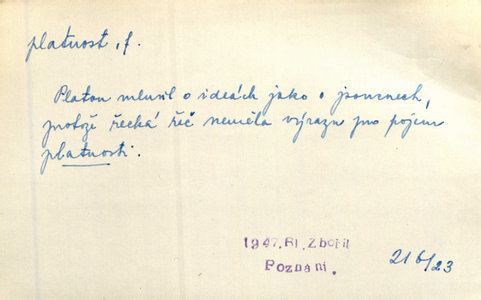 platnost, f.
Platon mluvil o ideách jako o jsoucnech,
protože řecká řeč neměla výrazu pro pojem
platnosti.
1947, Bl. Zbořil
Poznání.
216/23